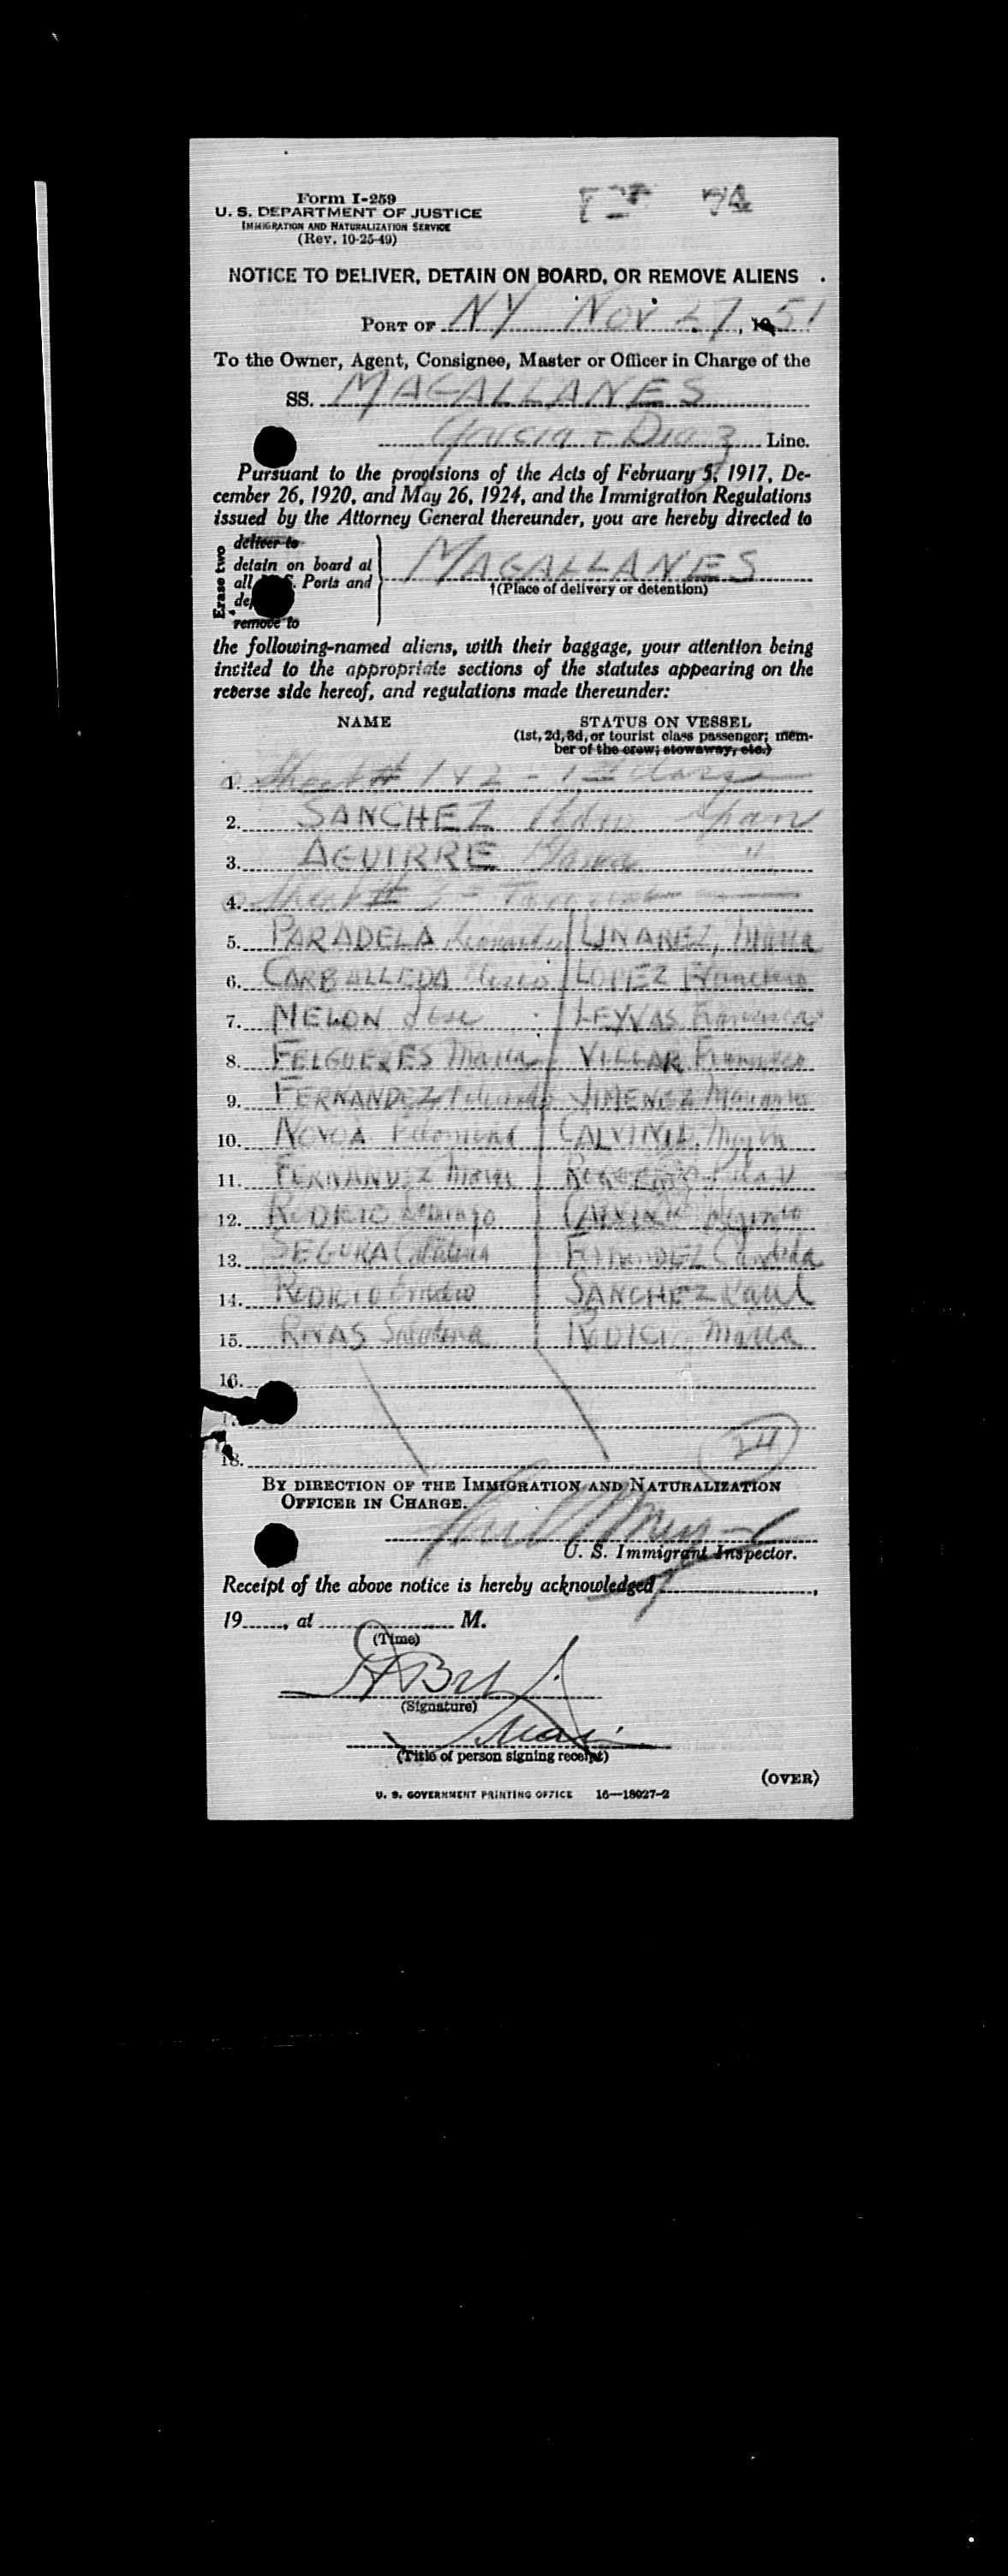 Form I-259
U. S. DEPARTMENT OF JUSTICE
IMMIGRATION AND NATURALIZATION SERVICE
(Rev. 10-25-49)
NOTICE TO DELIVER, DETAIN ON BOARD, OR REMOVE ALIENS
PORT OF NY Nov 27, 1951
To the Owner, Agent, Consignee, Master or Officer in Charge of the
SS. MAGALLANES
Garcia - Diaz Line.
Pursuant to the provisions of the Acts of February 5, 1917, De-
cember 26, 1920, and May 26, 1924, and the Immigration Regulations
issued by the Attorney General thereunder, you are hereby directed to
Erase two
deliver to
detain on board at
all Ports and
remove to
MAGALLANES
†(Place of delivery or detention)
the following-named aliens, with their baggage, your attention being
invited to the appropriate sections of the statutes appearing on the
reverse side hereof, and regulations made thereunder:
NAME STATUS ON VESSEL
(1st, 2d, 3d, or tourist class passenger; mem-
ber of the crew; stowaway, etc.)
1. Sheet # 1 & 2 - 1st Class
2. SANCHEZ Span
3. AGUIRRE "
4. Sheet #
5. PARADELA LINAREZ, Maria
6. CARBALLEDA LOPEZ
7. MELON Jose LEYVAS
8. FELGUERES Maria VILLAR Francisco
9. FERNANDEZ JIMENEZ
10. NOVOA
11. FERNANDEZ Maria
12. RODICIO Domingo
13. SEGURA Candida
14. SANCHEZ Raul
15. RIVAS RODICIO Maria
16.
18.
24
BY DIRECTION OF THE IMMIGRATION AND NATURALIZATION
OFFICER IN CHARGE.
U. S. Immigrant Inspector.
Receipt of the above notice is hereby acknowledged
19 , at M.
(Time)
(Signature)
(Title of person signing receipt)
(OVER)
U. S. GOVERNMENT PRINTING OFFICE 16—18027-2